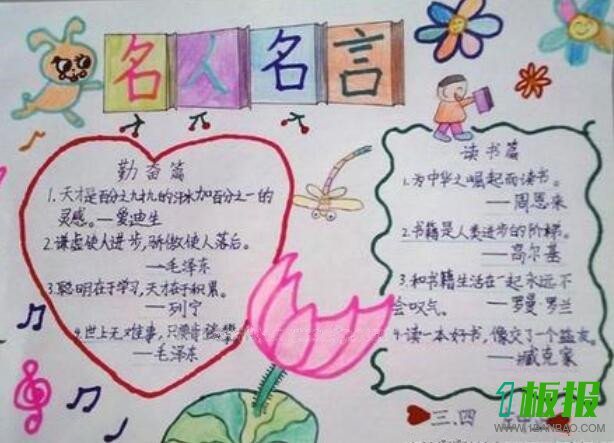 名人名言
勤奋篇
1.天才是百分之九十九的汗水加百分之一的
灵感。—爱迪生
2.谦虚使人进步,骄傲使人落后。
—毛泽东
3.聪明在于学习,天才在于积累。
—列宁
4.世上无难事,只要肯登攀
—毛泽东
读书篇
1.为中华之崛起而读书。
—周恩来
2.书籍是人类进步的阶梯。
—高尔基
3.和书籍生活在一起永远不
会叹气。—罗曼罗兰
4.读一本好书,像交了一个益友。
—臧克家
三.四
板报
WWW.1BANBAO.COM